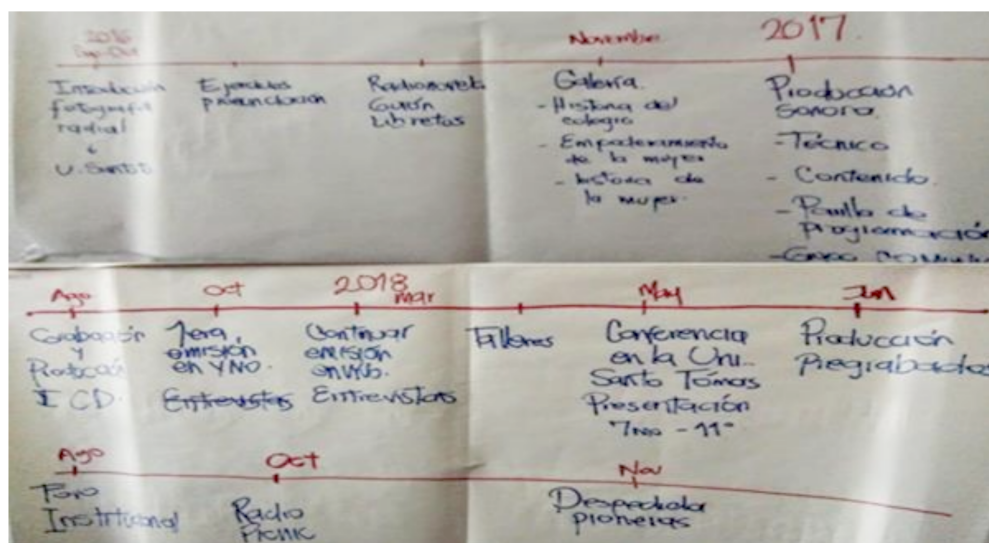 2016
Sep-Oct
Noviembre
2017.
Introducción
fotografía
radial
U. Santo
Ejercicios
pronunciación
Radionovela
Guión
Libretos
Galería.
- Historia del
colegio
- Empoderamiento
de la mujer
- historia de
la mujer.
Producción
Sonora.
- Técnico
- Contenido.
- Parrilla de
Programación
Ago
Oct
2018
mar
May
Jun
Grabación
y
Producción
I CD.
1era
emisión
en VNO.
Entrevistas
Continuar
emisión
Entrevistas
Talleres
Conferencia
en la Uni.
Santo Tómas
Presentación
7mo - 11°
Producción
Pregrabados
Ago
Oct
Nov
Foro
Institucional
Radio
Picnic
Despedida
pioneras